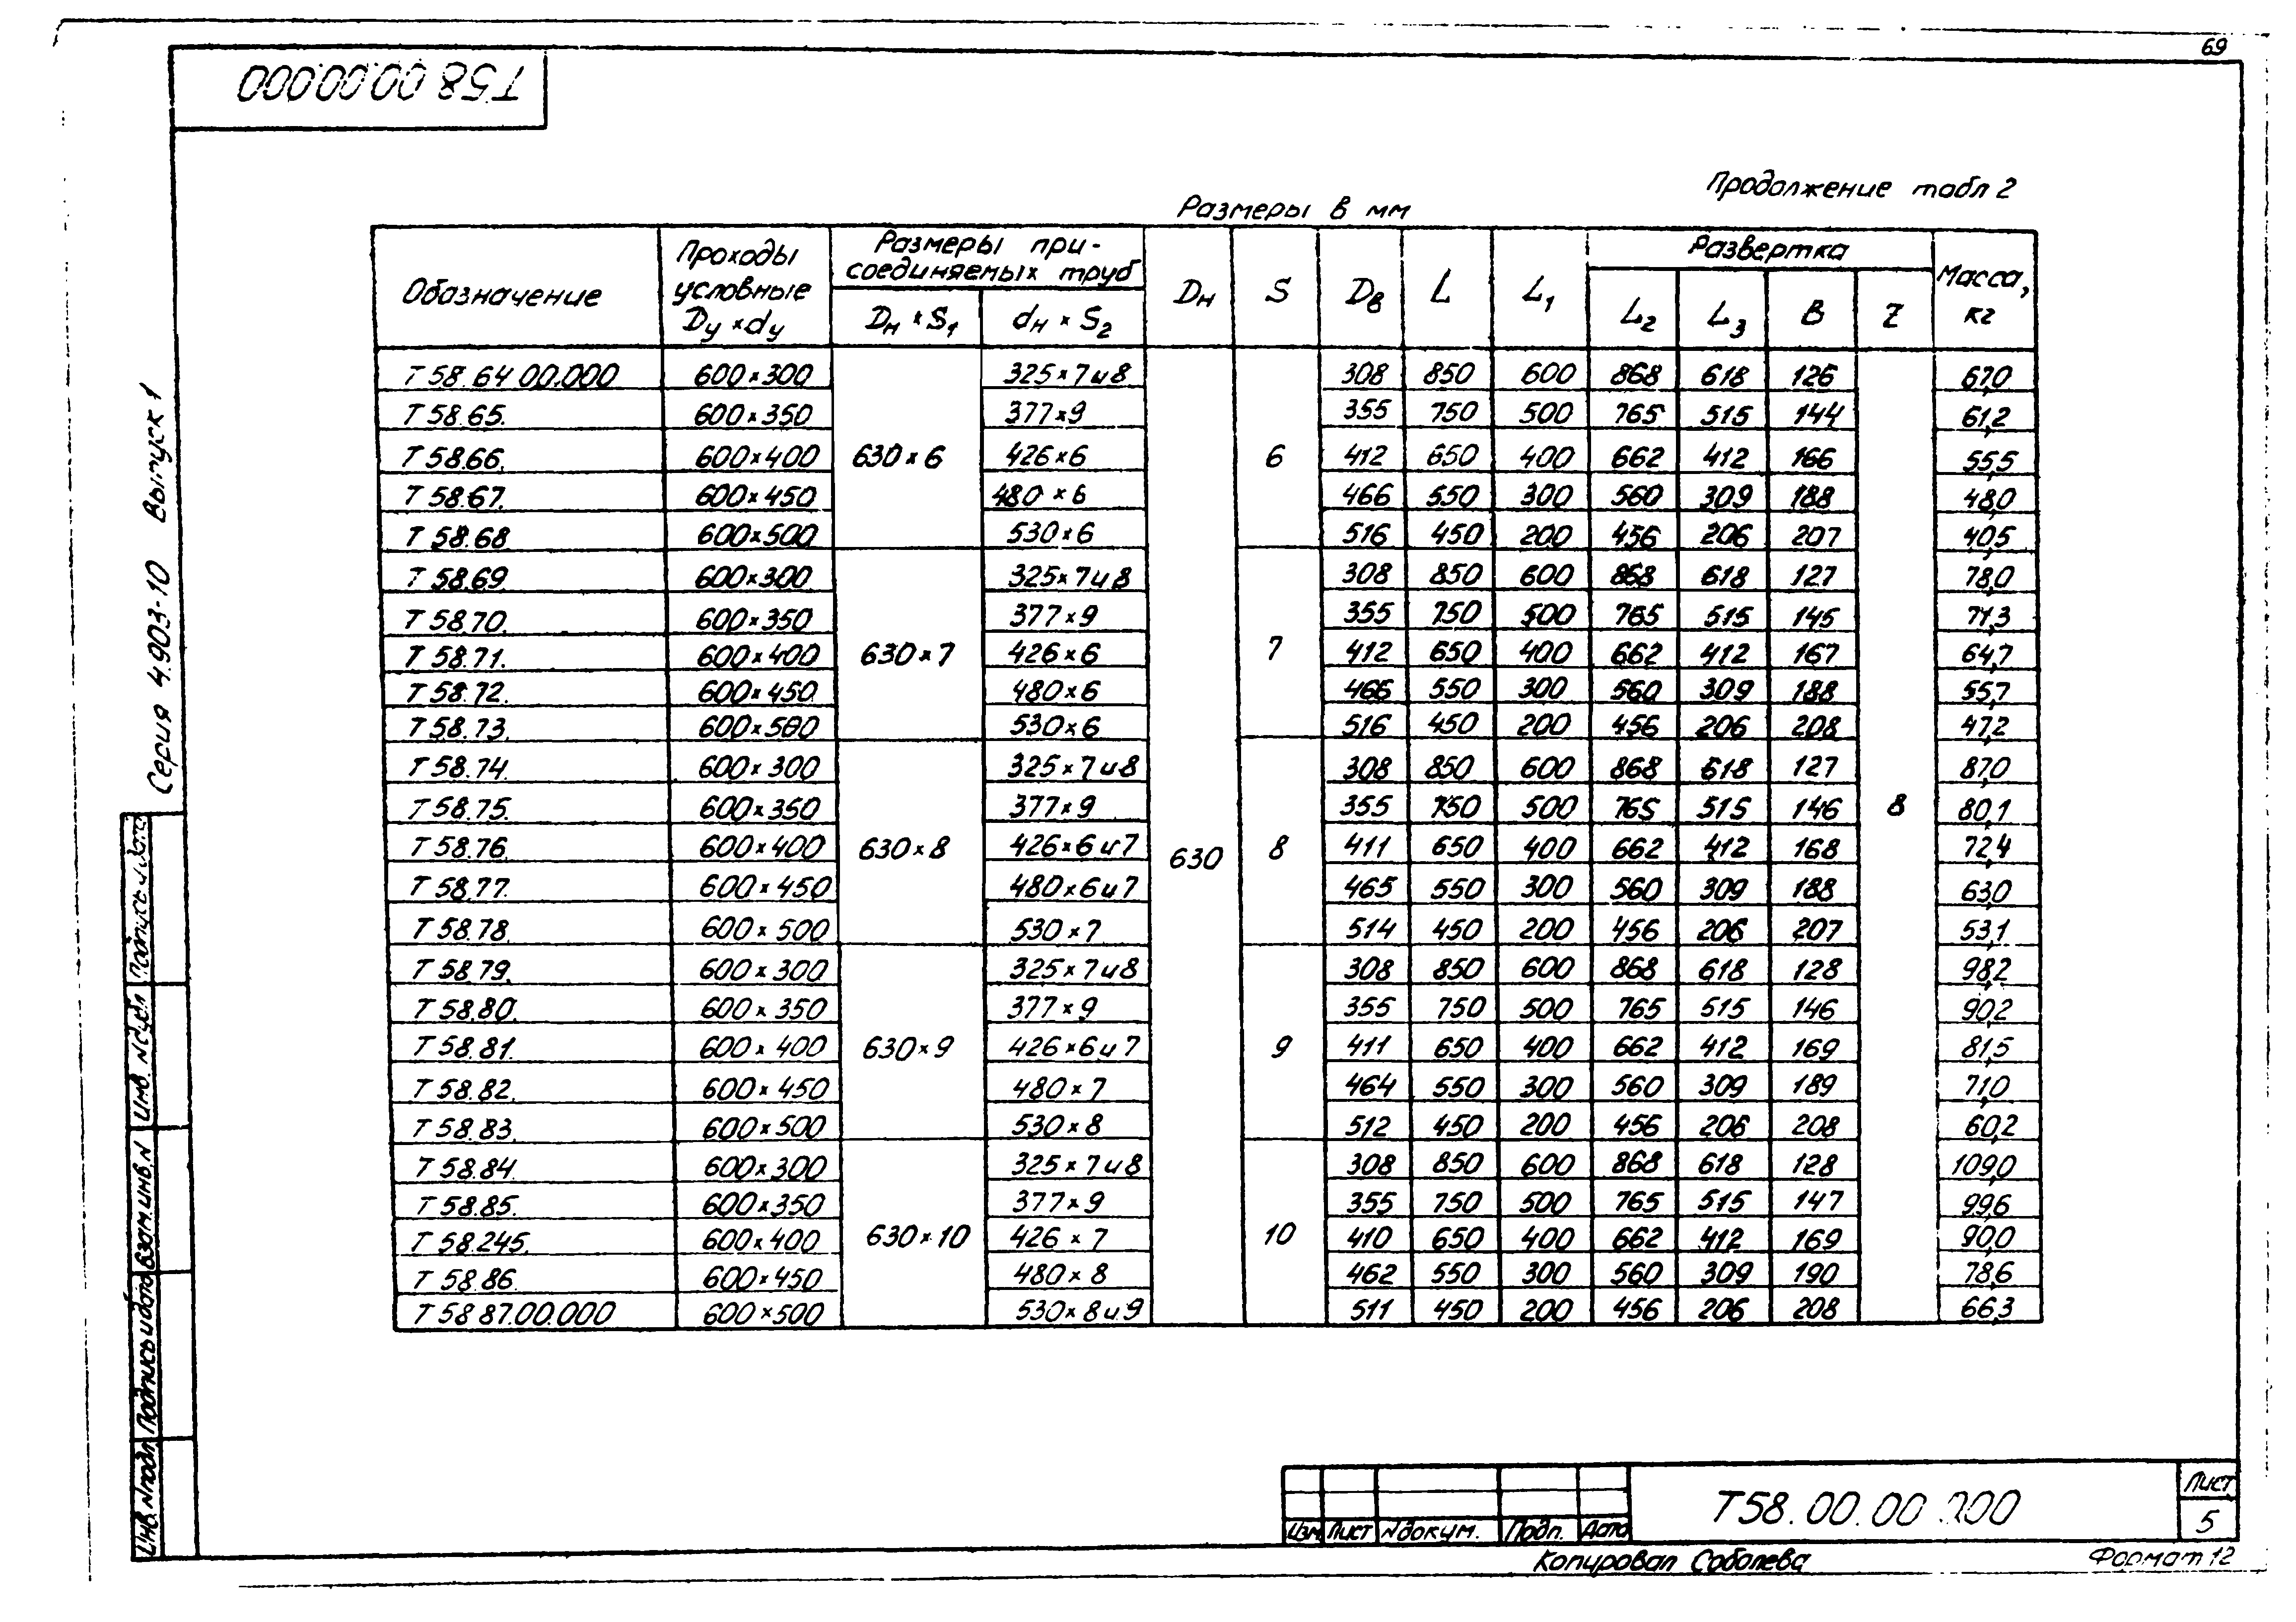 69
Т58 00.00.000
Серия 4.903-10 Выпуск 1
Продолжение табл 2
Размеры в мм
Обозначение | Проходы условные Dу × dу | Размеры присоединяемых труб | Dн | S | Dв | L | L1 | Развертка | Масса, кг
Dн × S1 | dн × S2 | L2 | L3 | B | Z
Т 58.64 00.000 600×300 325×7и8 308 850 600 868 618 126 67,0
Т 58.65. 600×350 377×9 355 750 500 765 515 144 61,2
Т 58.66. 600×400 630×6 426×6 6 412 650 400 662 412 166 55,5
Т 58.67. 600×450 480×6 466 550 300 560 309 188 48,0
Т 58.68 600×500 530×6 516 450 200 456 206 207 40,5
Т 58.69 600×300 325×7и8 308 850 600 868 618 127 78,0
Т 58.70. 600×350 377×9 355 750 500 765 515 145 71,3
Т 58.71. 600×400 630×7 426×6 7 412 650 400 662 412 167 64,7
Т 58.72. 600×450 480×6 466 550 300 560 309 188 55,7
Т 58.73. 600×500 530×6 516 450 200 456 206 208 47,2
Т 58.74. 600×300 325×7и8 308 850 600 868 618 127 87,0
Т 58.75. 600×350 377×9 355 750 500 765 515 146 8 80,1
Т 58.76. 600×400 630×8 426×6и7 630 8 411 650 400 662 412 168 72,4
Т 58.77. 600×450 480×6и7 465 550 300 560 309 188 63,0
Т 58.78. 600×500 530×7 514 450 200 456 206 207 53,1
Т 58.79. 600×300 325×7и8 308 850 600 868 618 128 98,2
Т 58.80. 600×350 377×9 355 750 500 765 515 146 90,2
Т 58.81. 600×400 630×9 426×6и7 9 411 650 400 662 412 169 81,5
Т 58.82. 600×450 480×7 464 550 300 560 309 189 71,0
Т 58.83. 600×500 530×8 512 450 200 456 206 208 60,2
Т 58.84. 600×300 325×7и8 308 850 600 868 618 128 109,0
Т 58.85. 600×350 377×9 355 750 500 765 515 147 99,6
Т 58.245. 600×400 630×10 426×7 10 410 650 400 662 412 169 90,0
Т 58.86. 600×450 480×8 462 550 300 560 309 190 78,6
Т 58 87.00.000 600×500 530×8и9 511 450 200 456 206 208 66,3
Подпись и дата
Инв. N дубл
Взам.инв.N
Подпись и дата
Инв. N подл.
Изм Лист N докум. Подп. Дата
Т58.00.00.000
Лист
5
Копировал Соболева
Формат 12